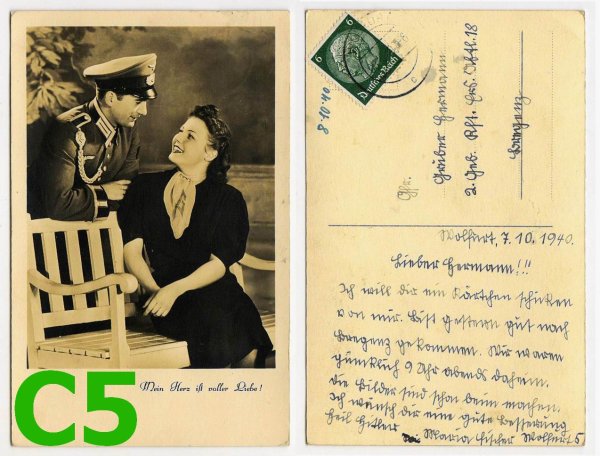 C5
Mein Herz ist voller Liebe!
6 6
Deutsches Reich
8.10.40.
Gfr.
Gruber Hermann
2. Geb. Kft. Ers. Abtl. 18
Bregenz
Wolfurt, 7. 10. 1940.
Lieber Hermann!!!
Ich will dir ein Kärtchen schicken
von mir. Bist gestern gut nach
Bregenz gekommen. Wir waren
pünktlich 9 Uhr abends daheim.
Die Bilder sind schon beim machen.
Ich wünsch dir eine gute besserung
Heil Hitler
Maria Fischer Wolfurt 5